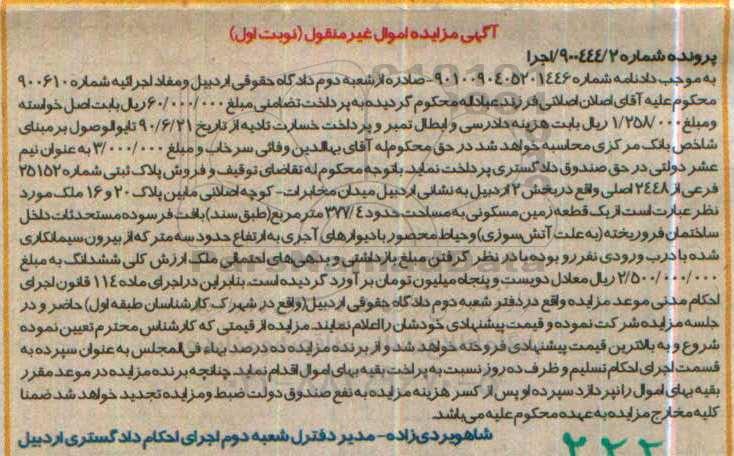 آگهی مزایده اموال غیر منقول (نوبت اول)
پرونده شماره ۹۰۰۴۴۴/۲/اجرا
به موجب دادنامه شماره ۹۰۱۰۰۹۰۴۰۵۲۰۱۴۴۶-صادره از شعبه دوم دادگاه حقوقی اردبیل و مفاد اجرائیه شماره ۹۰۰۶۱۰
محکوم علیه آقای اصلان اصلانی فرزند عبداله محکوم گردیده به پرداخت تضامنی مبلغ ۶۰/۰۰۰/۰۰۰ ریال بابت اصل خواسته
ومبلغ ۱/۲۵۸/۰۰۰ ریال بابت هزینه دادرسی و ابطال تمبر و پرداخت خسارت تادیه از تاریخ ۹۰/۶/۲۱ تا یوالوصول بر مبنای
شاخص بانک مرکزی محاسبه خواهد شد در حق محکوم له آقای بهاالدین وفائی سرخاب و مبلغ ۳/۰۰۰/۰۰۰ به عنوان نیم
عشر دولتی در حق صندوق دادگستری پرداخت نماید. باتوجه محکوم له تقاضای توقیف و فروش پلاک ثبتی شماره ۲۵۱۵۲
فرعی از ۲۴۴۸ اصلی واقع در بخش ۲ اردبیل به نشانی اردبیل میدان مخابرات- کوچه اصلانی مابین پلاک ۲۰ و ۱۶ ملک مورد
نظر عبارت است از یک قطعه زمین مسکونی به مساحت حدود ۳۷۷/۴ متر مربع (طبق سند) بافت فرسوده مستحدثات داخل
ساختمان فرو ریخته (به علت آتش سوزی) و حیاط محصور با دیوارهای آجری به ارتفاع حدود سه متر که از بیرون سیمانکاری
شده با درب ورودی نفر رو بوده با در نظر گرفتن مبلغ بازداشتی و بدهی های احتمالی ملک ارزش کلی ششدانگ به مبلغ
۲/۵۰۰/۰۰۰/۰۰۰ ریال معادل دویست و پنجاه میلیون تومان برآورد گردیده است. بنابراین در اجرای ماده ۱۱۴ قانون اجرای
احکام مدنی موعد مزایده واقع در دفتر شعبه دوم دادگاه حقوقی اردبیل (واقع در شهرک کارشناسان طبقه اول) حاضر و در
جلسه مزایده شرکت نموده و قیمت پیشنهادی خودشان را اعلام نمایند. مزایده از قیمتی که کارشناس محترم تعیین نموده
شروع و به بالاترین قیمت پیشنهادی فروخته خواهد شد و از برنده مزایده ده درصد بهاء فی المجلس به عنوان سپرده به
قسمت اجرای احکام تسلیم و ظرف ده روز نسبت به پراخت بقیه بهای اموال اقدام نماید. چنانچه برنده مزایده در موعد مقرر
بقیه بهای اموال را نپردازد سپرده او پس از کسر هزینه مزایده به نفع صندوق دولت ضبط و مزایده تجدید خواهد شد ضمنا
کلیه مخارج مزایده به عهده محکوم علیه می باشد.
شاهویردی زاده - مدیر دفترل شعبه دوم اجرای احکام دادگستری اردبیل
۲۲۲